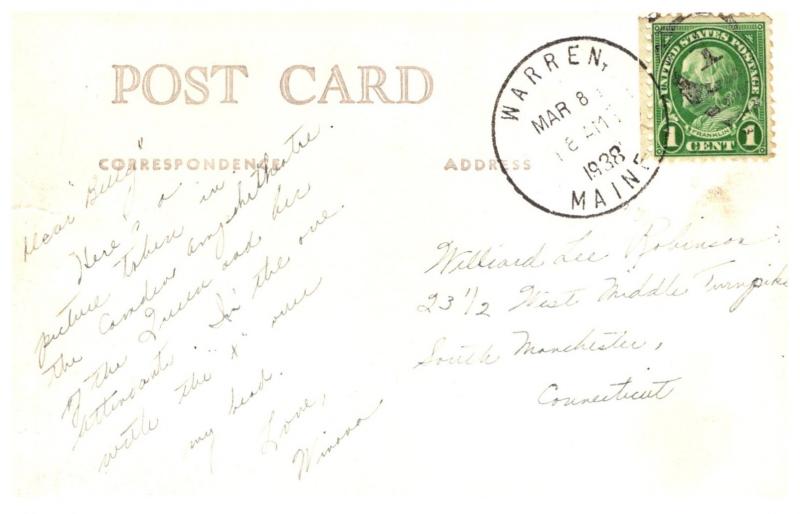 POST CARD
CORRESPONDENCE
ADDRESS
WARREN,
MAR 8
8 AM
1938
MAINE
UNITED STATES POSTAGE
FRANKLIN
1 CENT 1
Dear "Billy"
Here's a
picture taken in
the Camden amphitheatre
of the Queen and her
attendants. I'm the one
with the "x" over
my head.
Love,
Winona
Williard Lee Robinson
23 1/2 West Middle Turnpike
South Manchester,
Connecticut